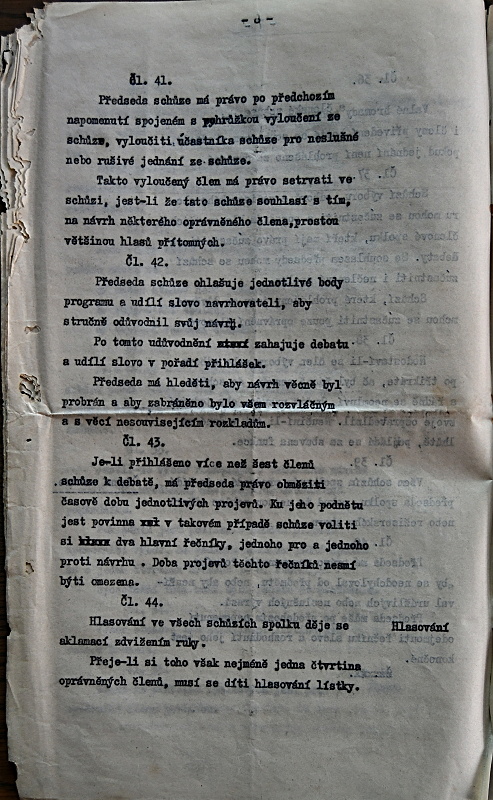 - 8 -
Čl. 41.
Předseda schůze má právo po předchozím
napomenutí spojeném s pohrůžkou vyloučení ze
schůze, vyloučiti účastníka schůze pro neslušné
nebo rušivé jednání ze schůze.
Takto vyloučený člen má právo setrvati ve
schůzi, jest-li že tato schůze souhlasí s tím,
na návrh některého oprávněného člena,prostou
většinou hlasů přítomných.
Čl. 42.
Předseda schůze ohlašuje jednotlivé body
programu a udílí slovo navrhovateli, aby
stručně odůvodnil svůj návrh.
Po tomto udůvodnění zahajuje debatu
a udílí slovo v pořadí přihlášek.
Předseda má hleděti, aby návrh věcně byl
probrán a aby zabráněno bylo všem rozvláčným
a s věcí nesouvisejícím rozkladům.
Čl. 43.
Je-li přihlášeno více než šest členů
schůze k debatě, má předseda právo obmeziti
časově dobu jednotlivých projevů. Ku jeho podnětu
jest povinna v takovém případě schůze voliti
si dva hlavní řečníky, jednoho pro a jednoho
proti návrhu . Doba projevů těchto řečníků nesmí
býti omezena.
Čl. 44.
Hlasování ve všech schůzích spolku děje se
Hlasování
aklamací zdvižením ruky.
Přeje-li si toho však nejméně jedna čtvrtina
oprávněných členů, musí se díti hlasování lístky.